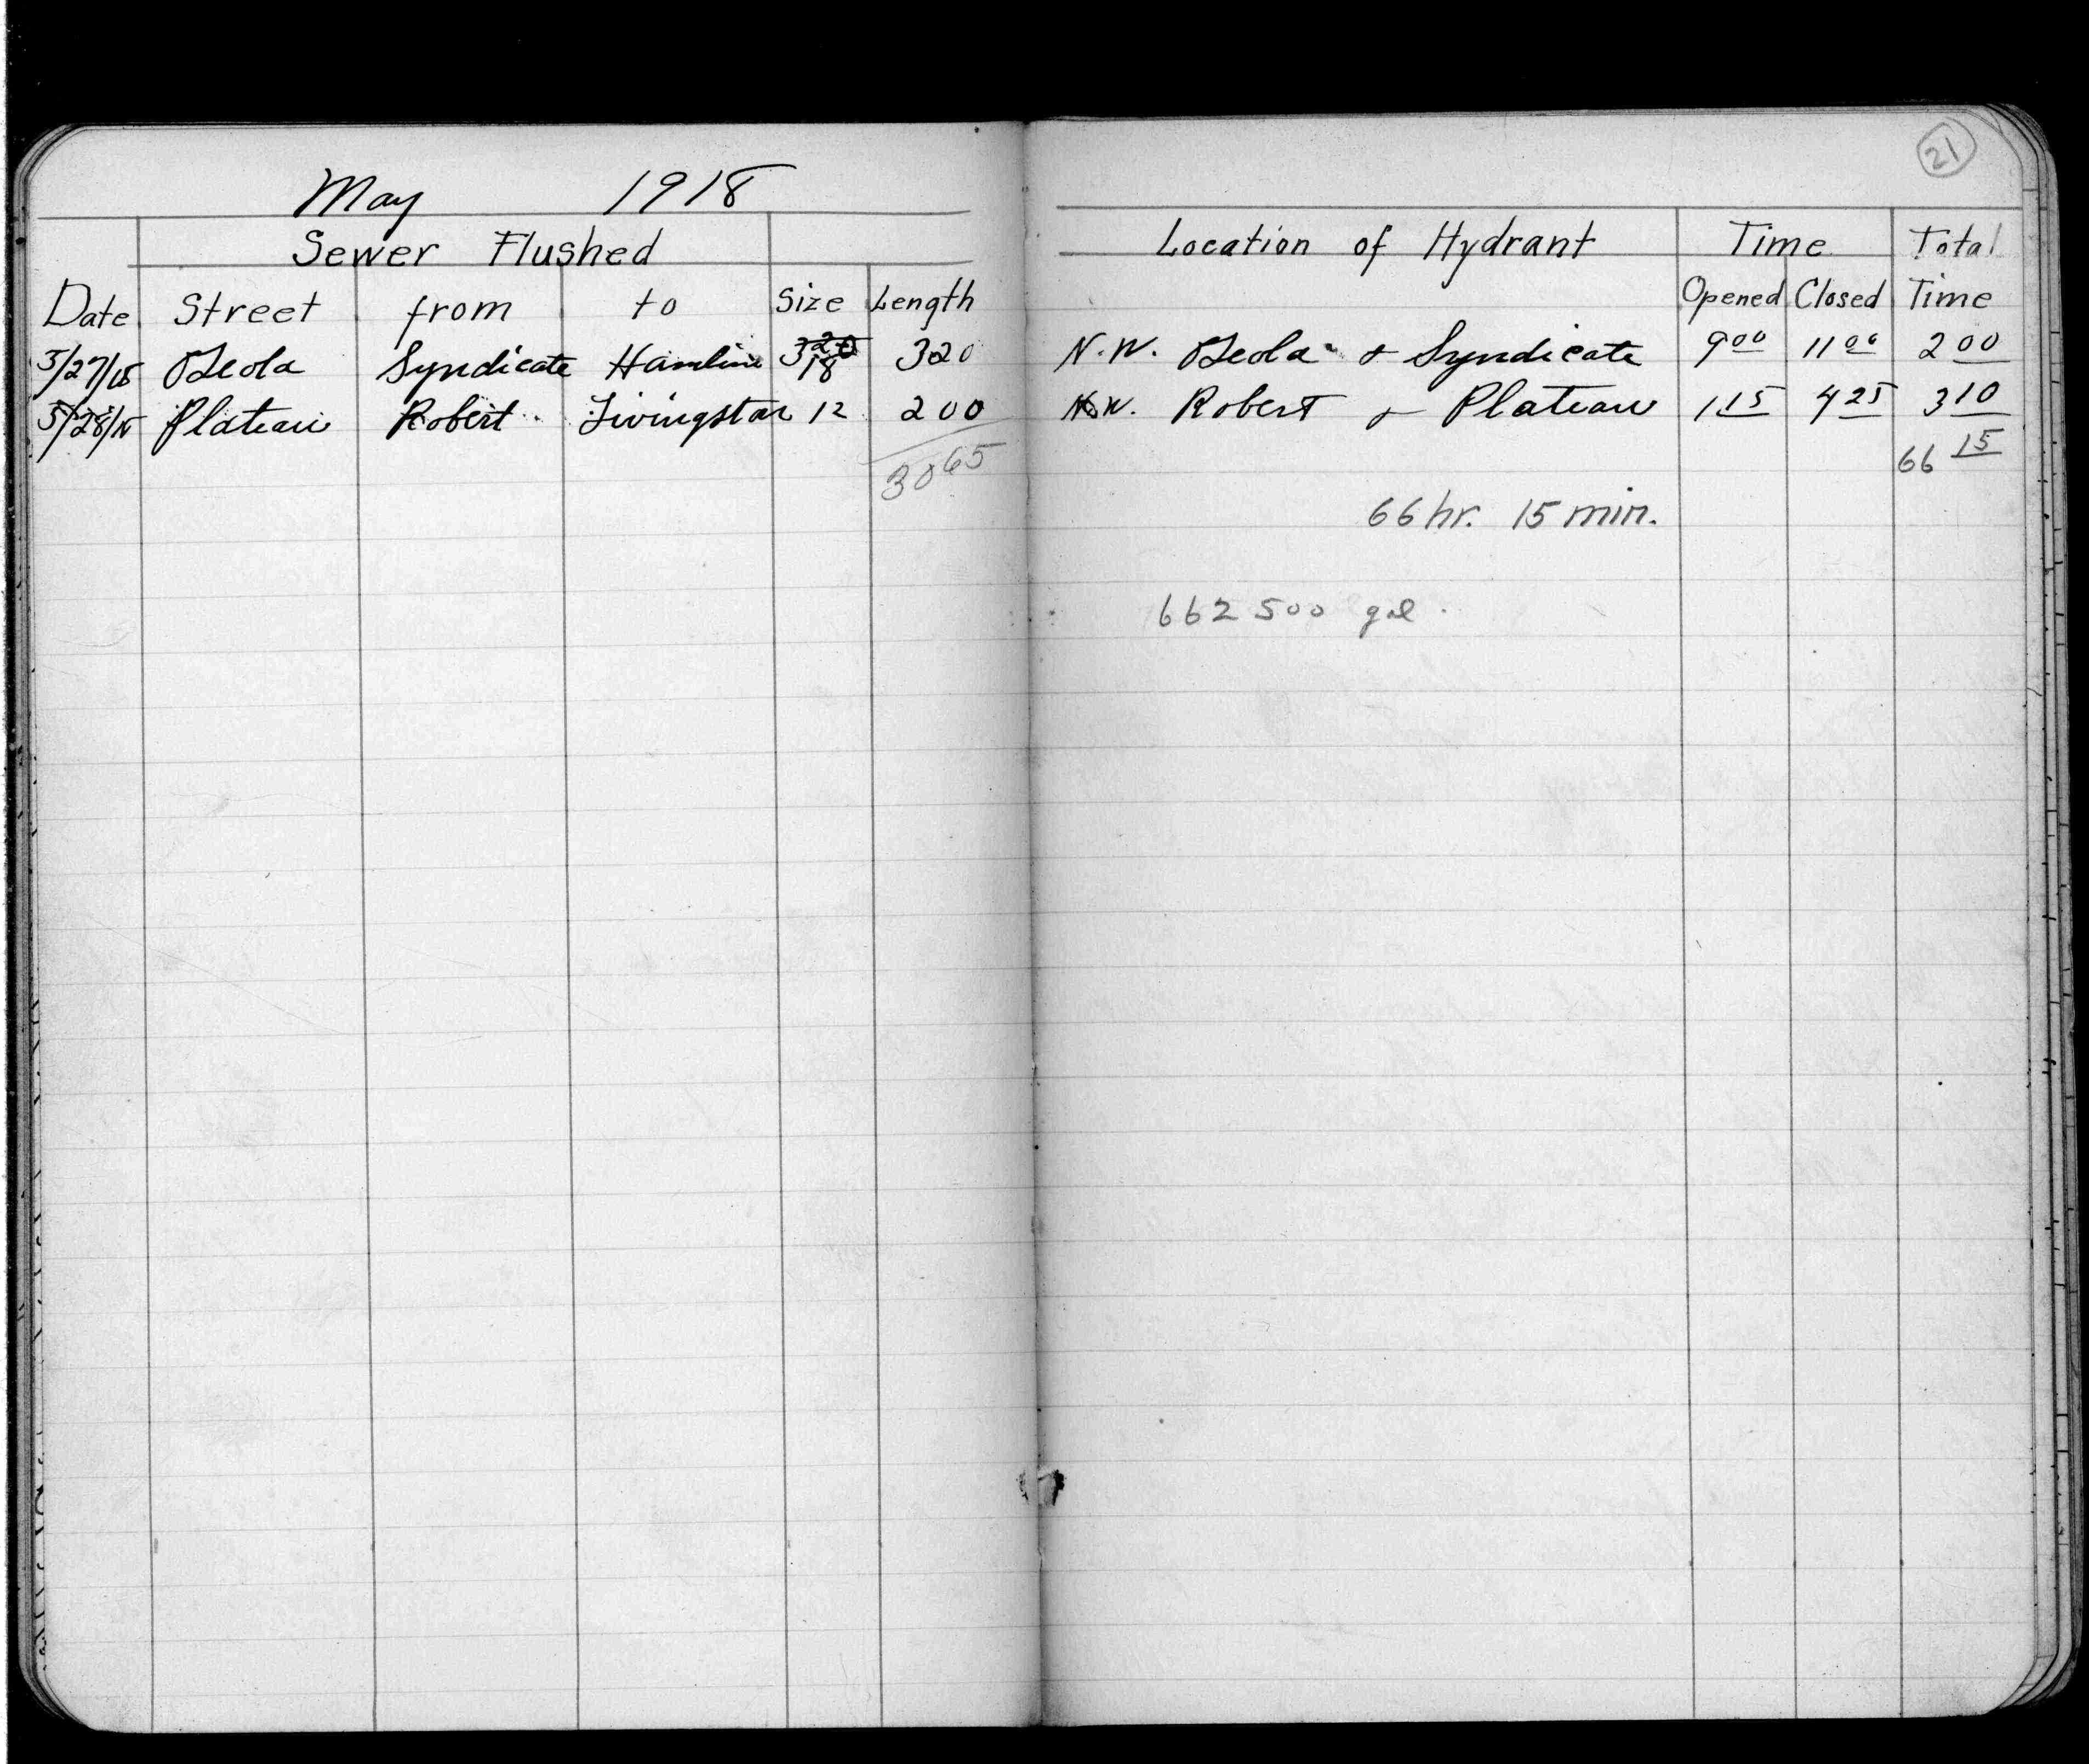 21
May 1918
Sewer Flushed Location of Hydrant Time Total
Date Street from to Size Length Opened Closed Time
5/27/18 Osceola Syndicate Hamline 18 320 N.W. Osceola & Syndicate 9 00 11 00 2 00
5/28/18 Plateau Robert Livingston 12 200 N.W. Robert & Plateau 1 15 4 25 3 10
3065 66 15
66 hr. 15 min.
662 500 gal.